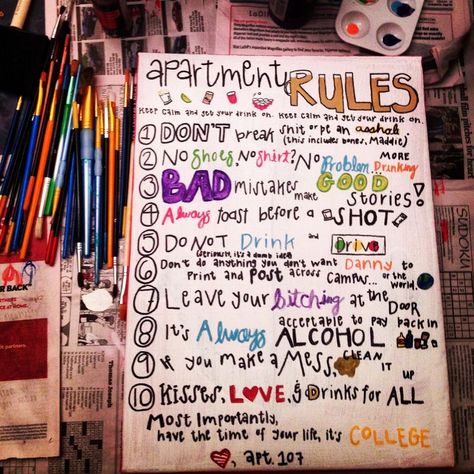 apartment RULES
KEEP CALM and get your drink on. KEEP CALM and get your drink on.
① DON'T break shit or be an asshole
(this includes bones, Maddie)
② No Shoes, No Shirt? No Problem... MORE Drinking
③ BAD mistakes make GOOD stories!
④ Always toast before a SHOT
⑤ DO NOT Drink and Drive
(seriously, it's a dumb idea)
⑥ Don't do anything you don't want Danny to
Print and Post across campus... or the world.
⑦ Leave your bitching at the DOOR
⑧ It's Always acceptable to pay back in ALCOHOL
⑨ If you make a Mess, CLEAN it up
⑩ Kisses, LOVE, & Drinks for ALL
Most Importantly,
have the time of your life, it's COLLEGE
, apt. 107